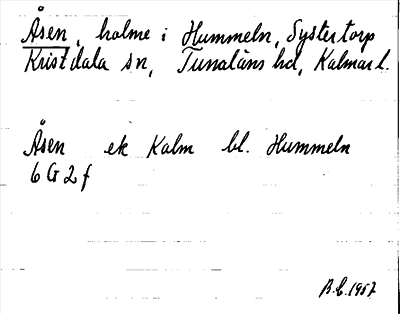 Åsen, holme i Hummeln, Systertorp
Kristdala sn, Tunaläns hd, Kalmar l.
Åsen ek Kalm bl. Hummeln
6 G 2 f
B.L. 1957